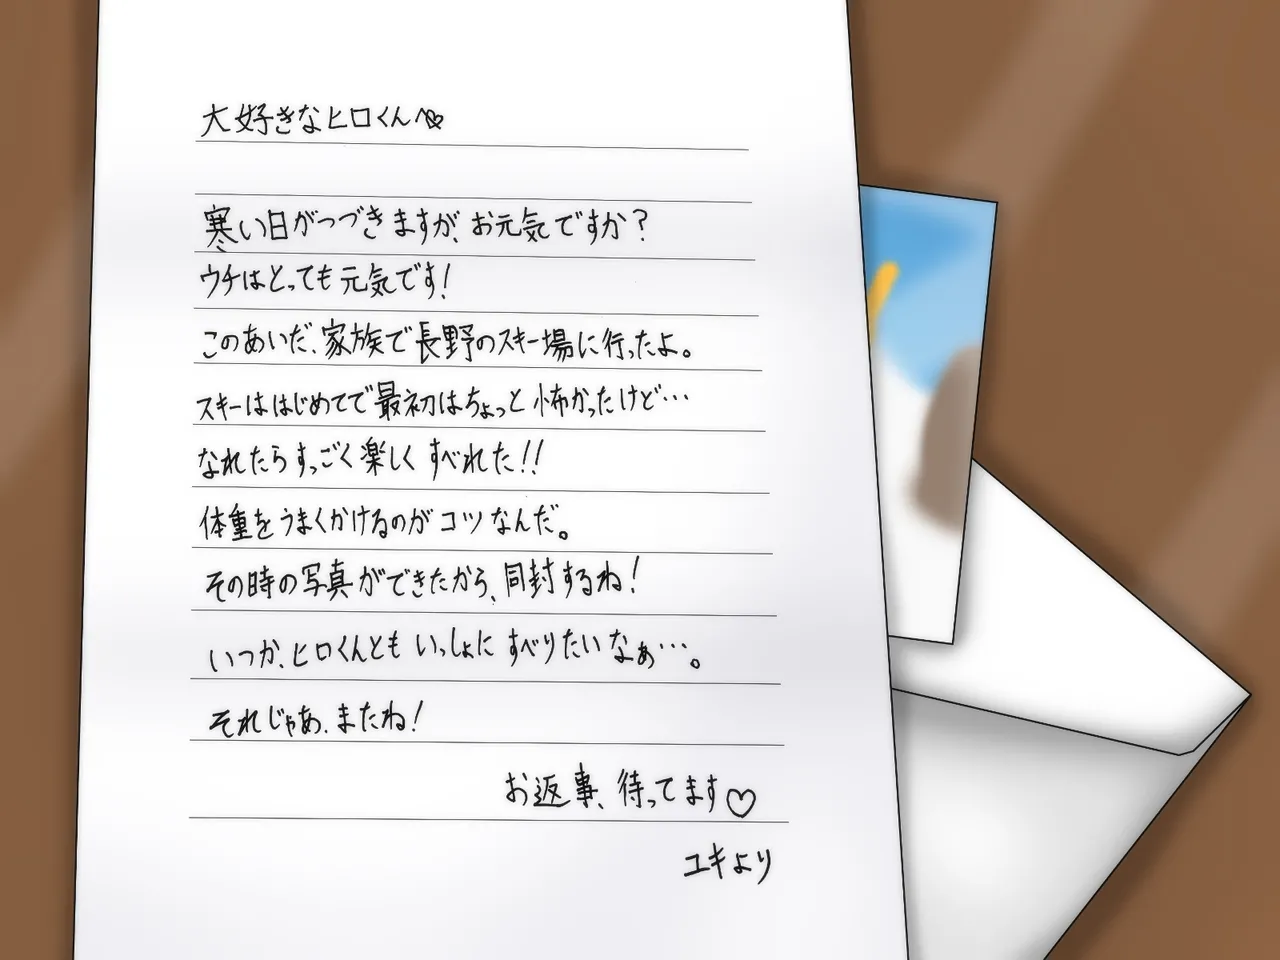 大好きなヒロくんへ♡
寒い日がつづきますが、お元気ですか？
ウチはとっても元気です！
このあいだ、家族で長野のスキー場に行ったよ。
スキーははじめてで最初はちょっと怖かったけど…
なれたらすっごく楽しくすべれた！！
体重をうまくかけるのがコツなんだ。
その時の写真ができたから、同封するね！
いつか、ヒロくんともいっしょにすべりたいなぁ…。
それじゃあ、またね！
お返事、待ってます♡
ユキより